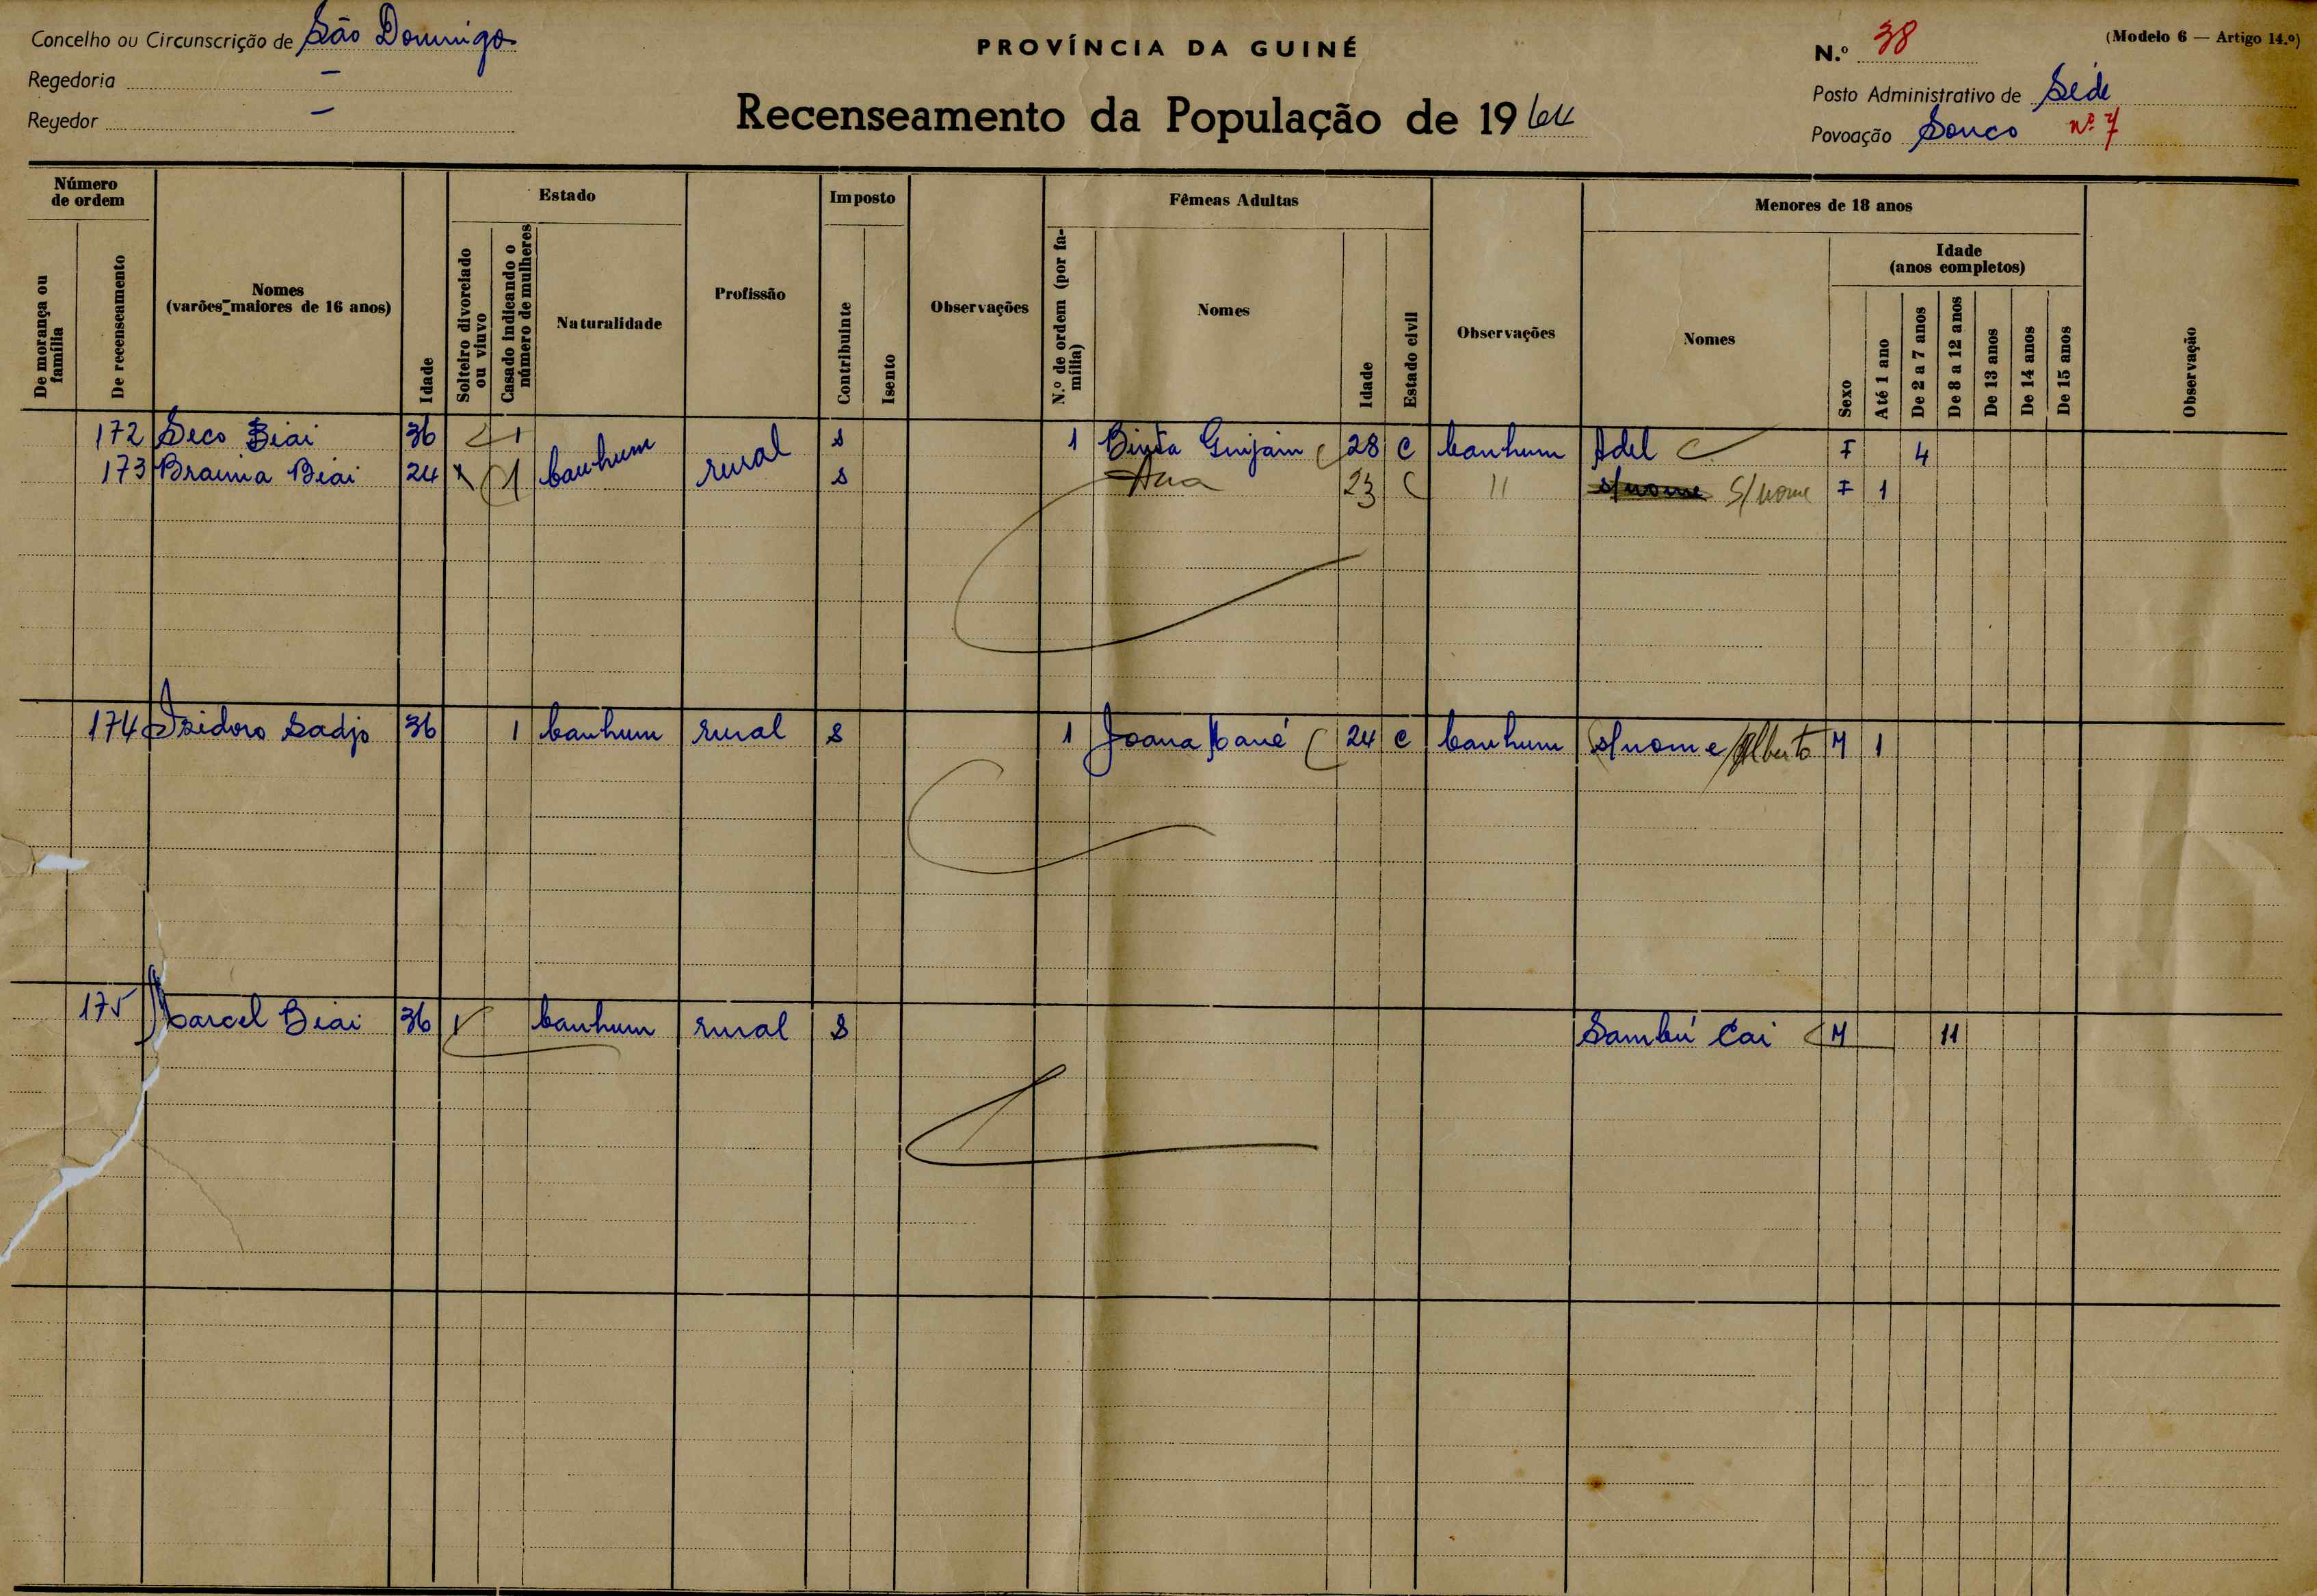 Concelho ou Circunscrição de São Domingos
PROVÍNCIA DA GUINÉ
N.º 38
(Modelo 6 — Artigo 14.º)
Regedoria —
Posto Administrativo de Sede
Regedor —
Recenseamento da População de 1964
Povoação Sonco nº 7
Número de ordem
Estado
Imposto
Fêmeas Adultas
Menores de 18 anos
De morança ou família
De recenseamento
Nomes (varões maiores de 16 anos)
Idade
Solteiro divorciado ou viuvo
Casado indicando o número de mulheres
Naturalidade
Profissão
Contribuinte
Isento
Observações
N.º de ordem (por família)
Nomes
Idade
Estado civil
Observações
Nomes
Idade (anos completos)
Sexo
Até 1 ano
De 2 a 7 anos
De 8 a 12 anos
De 13 anos
De 14 anos
De 15 anos
Observação
172 Seco Biai 36 1 banhum rural s 1 Binta 28 C banhum Adel F 4
173 Braima Biai 24 1 s Ana 23 C " s/nome S/nome F 1
174 Izidoro Sadjo 36 1 banhum rural s 1 Joana Mané 24 C banhum s/nome Alberto M 1
175 Marcel Biai 36 1 banhum rural s Sambú Cai M 11